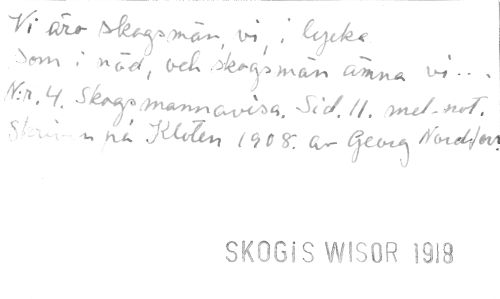 Vi äro skogsmän, vi, i lycka
som i nöd, och skogsmän ämna vi...
N:r. 4. Skogsmannavisa. Sid. 11. mel-not.
Skriven på Kloten 1908. av Georg
SKOGiS WISOR 1918